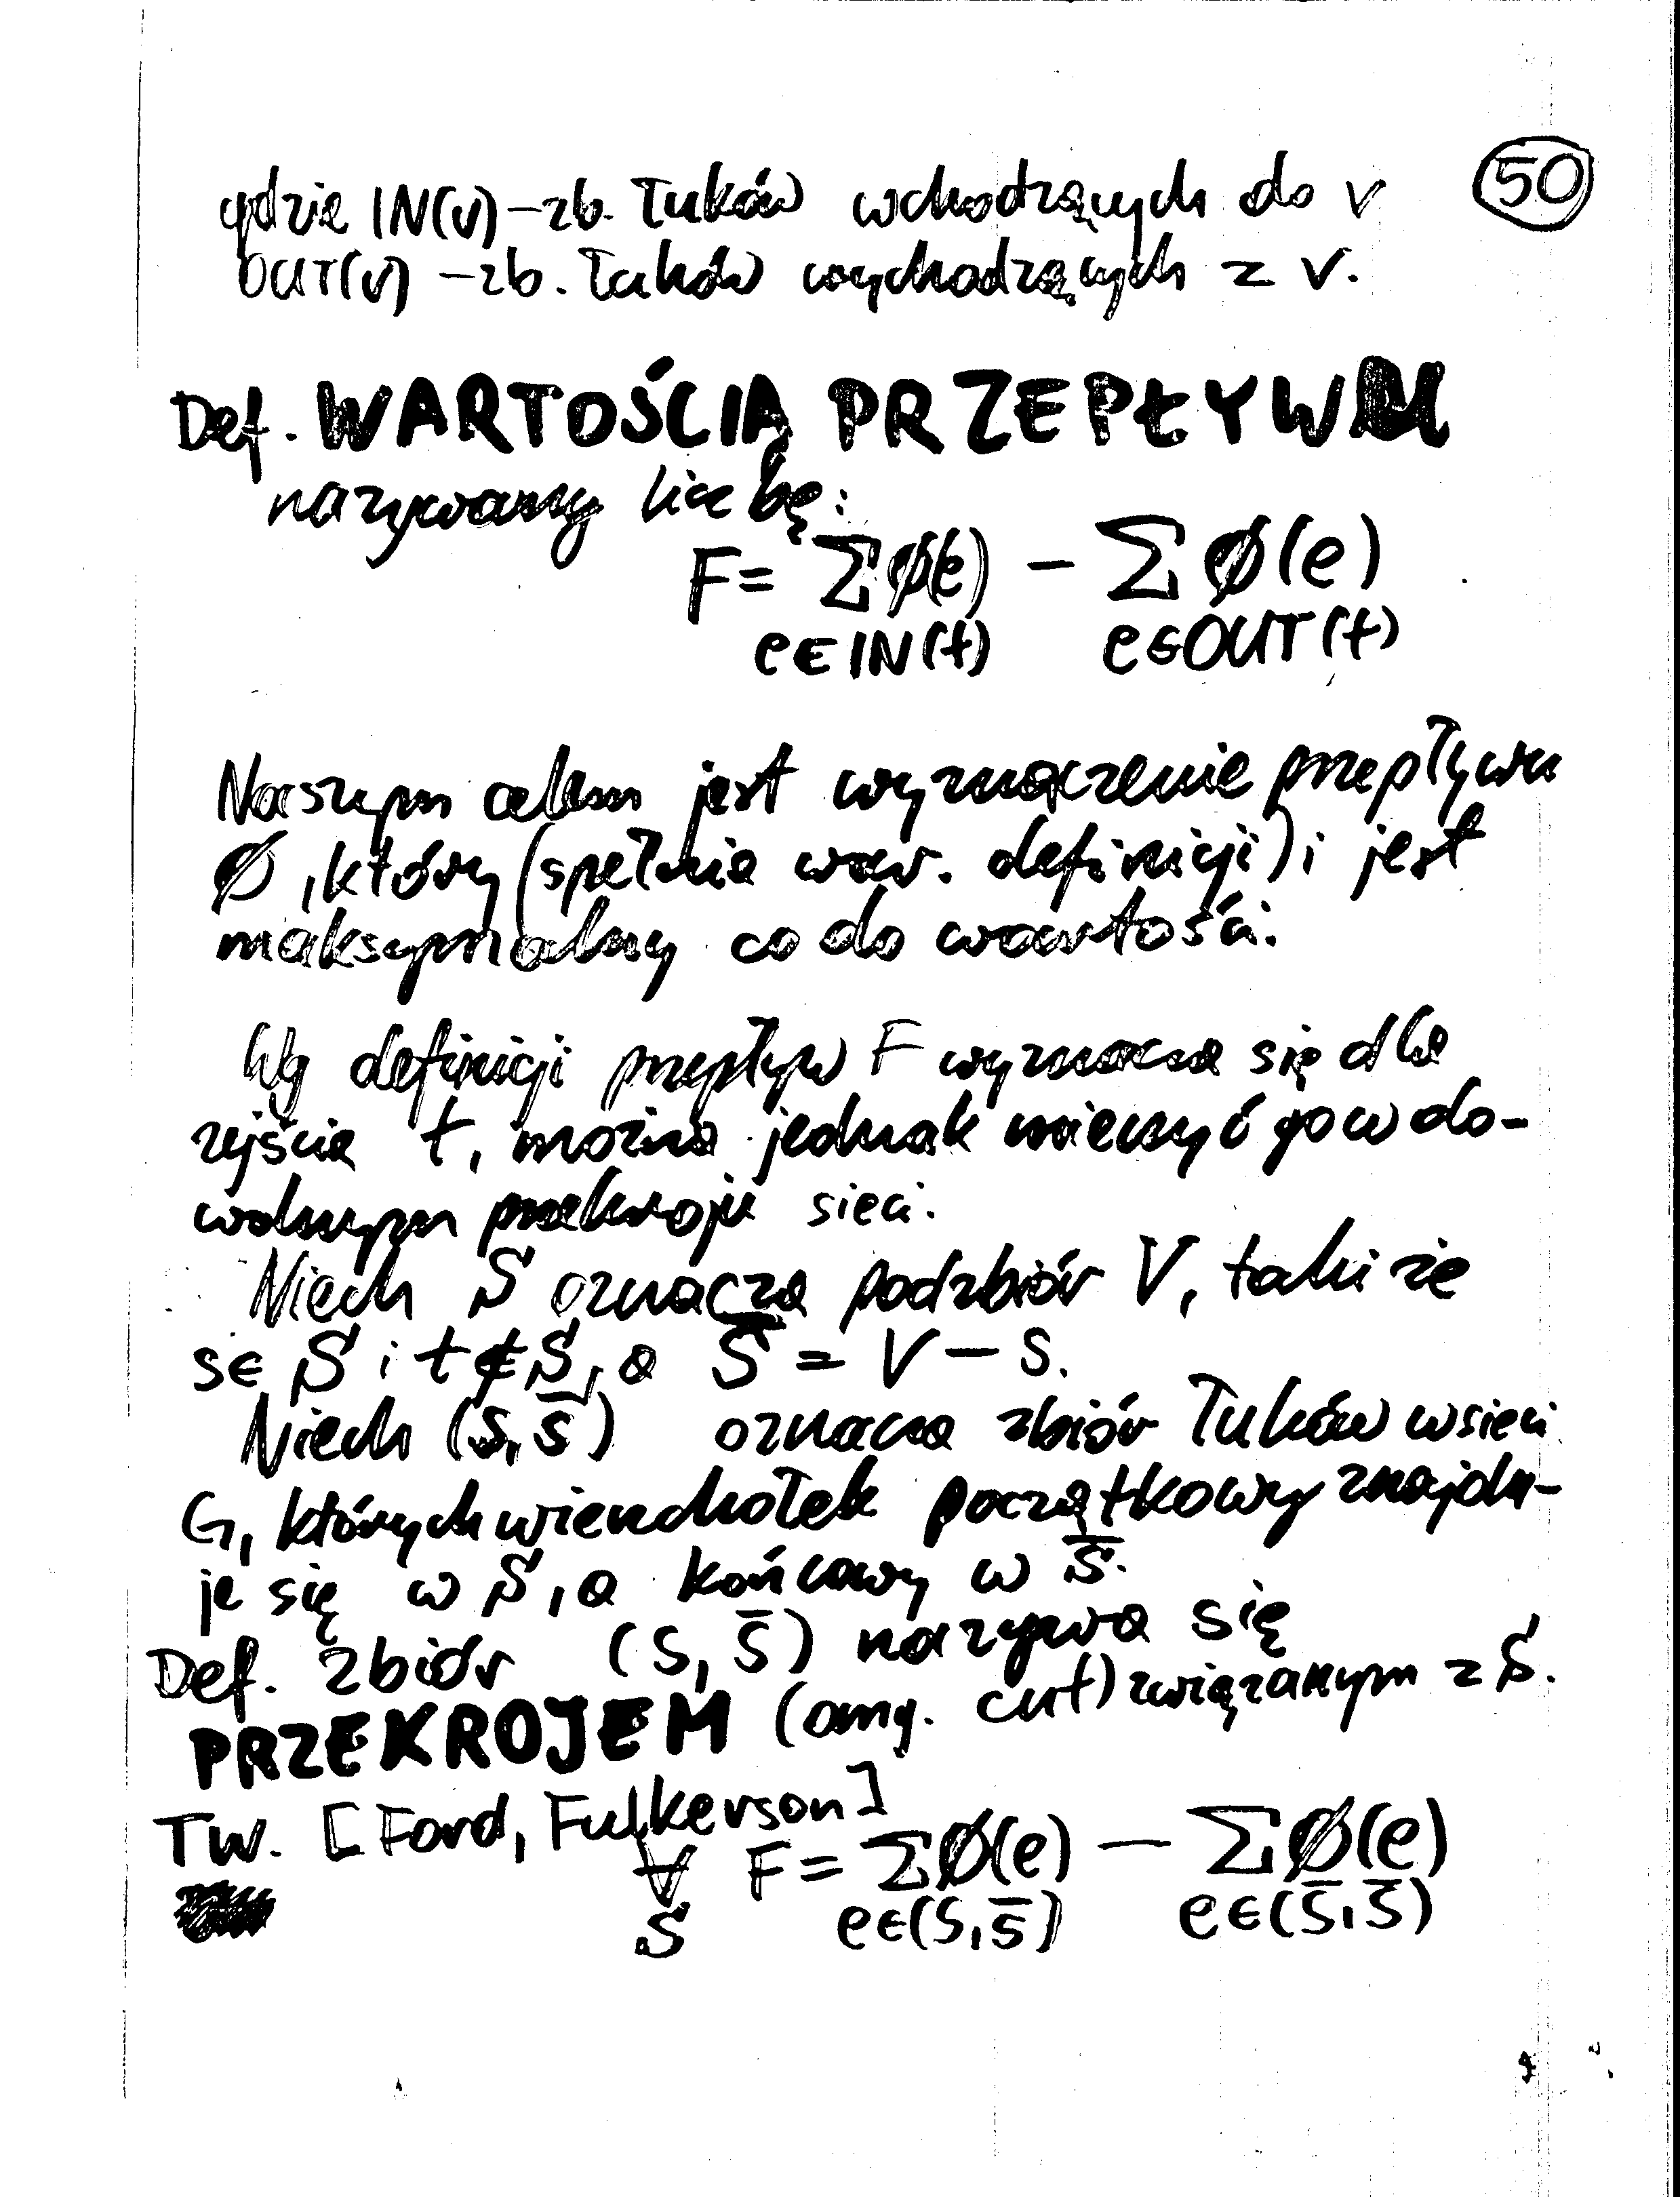 50
gdzie IN(v) – zb. łuków wchodzących do v
OUT(v) – zb. łuków wychodzących z v.
Def. WARTOŚCIĄ PRZEPŁYWU
nazywamy liczbę:
F = Σ φ(e) – Σ φ(e)
e∈IN(t) e∈OUT(t)
Naszym celem jest wyznaczenie przepływu
φ, który (spełnia war. definicji) i jest
maksymalny co do wartości.
Wg definicji przepływ F wyznacza się dla
zejścia t, można jednak mierzyć go w do-
wolnym przekroju sieci.
Niech S oznacza podzbiór V, taki że
s∈S i t∉S, a S̄ = V – S.
Niech (S, S̄) oznacza zbiór łuków w sieci
G, których wierzchołek początkowy znajdu-
je się w S, a końcowy w S̄.
Def. Zbiór (S, S̄) nazywa się
PRZEKROJEM (ang. cut) związanym z S.
Tw. [Ford, Fulkerson]
∀ F = Σ φ(e) – Σ φ(e)
S e∈(S, S̄) e∈(S̄, S̄)